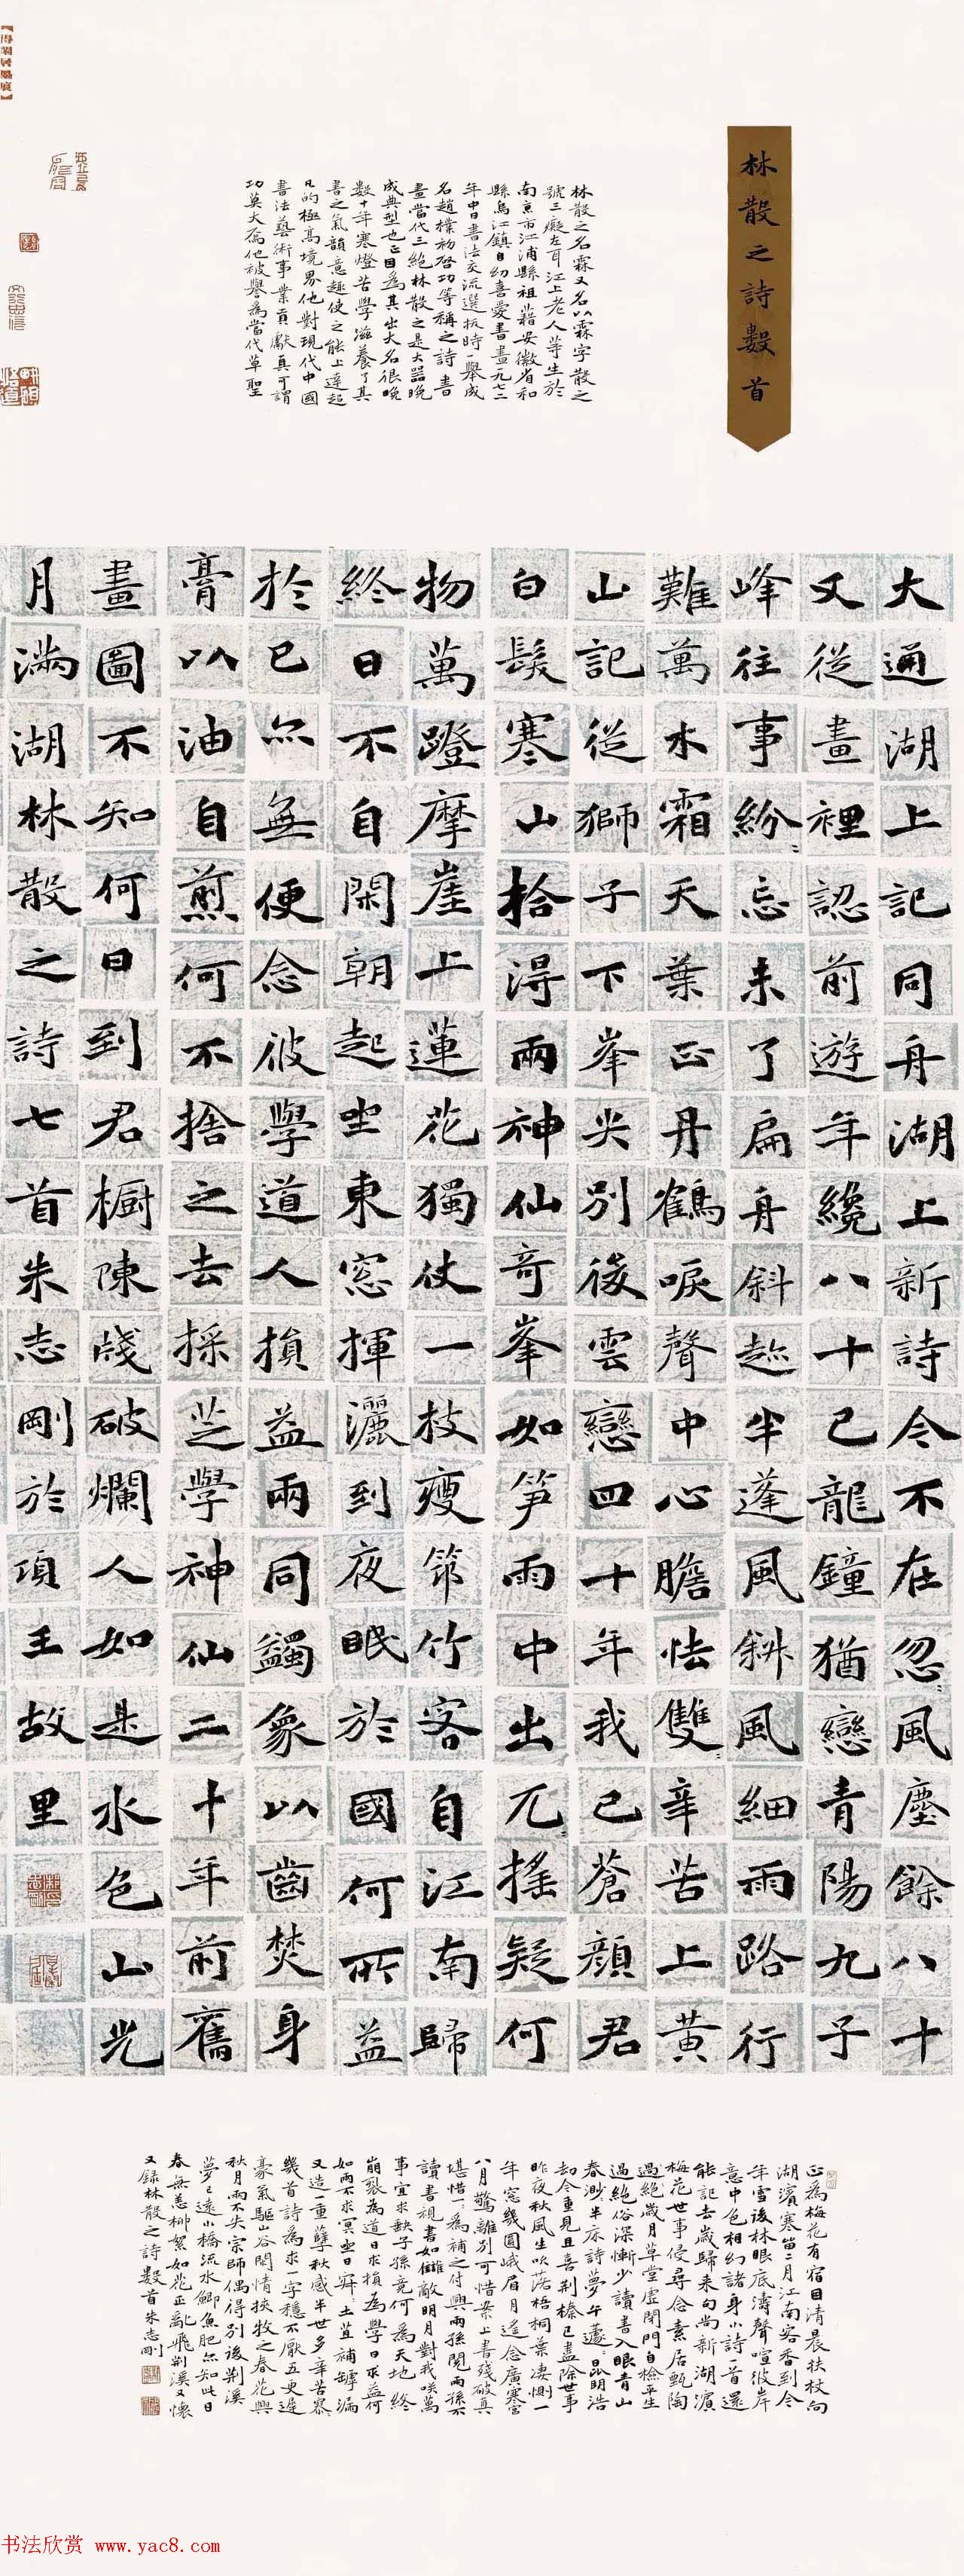 林散之詩數首
林散之名霖又名以霖字散之
號三癡左耳江上老人等生於
南京市江浦縣祖藉安徽省和
縣烏江鎮自幼喜愛書畫一九七二
年中日書法交流選拔時一舉成
名趙樸初啓功等稱之詩書
畫當代三絕林散之是大器晚
成典型也正因為其出大名很晚
數十年寒燈苦學滋養了其
書之氣韻意趣使之能上達超
凡的極高境界他對現代中國
書法藝術事業貢獻真可謂
功莫大焉他被譽為當代草聖
大通湖上記同舟湖上新詩今不在忽〻風塵餘八十
又從畫裡認前遊年纔八十已龍鐘猶戀青陽九子
峰往事紛〻忘未了扁舟斜趂半蓬風斜風細雨路行
難萬水霜天葉正丹鶴唳聲中心膽怯雙〻辛苦上黃
山記從獅子下峯尖別後雲巒四十年我已蒼顏君
白髮寒山拾得兩神仙奇峯如笋雨中出兀〻搖疑何
物萬蹬摩崖上蓮花獨仗一枝瘦筇竹客自江南歸
終日不自閑朝起坐東窓揮灑到夜眠於國何所益
於己亦無便念彼學道人損益兩同蠲象以齒焚身
膏以油自煎何不捨之去採芝學神仙二十年前舊
畫圖不知何日到君櫥陳牋破爛人如是水色山光
月滿湖林散之詩七首朱志剛於項王故里
正為梅花有宿因清晨扶杖向
湖濱寒笛二月江南客香到今
年雪後林眼底濤聲喧彼岸
意中色相幻諸身小詩一首還
能記去歲歸來句尚新湖濱
梅花世事侵尋念素居甄陶
過絕歲月草堂虛閑門自檢平生
過絕俗深慚少讀書入眼青山
春渺〻半床詩夢午蘧〻昂明浩
劫今重見且喜荆榛已盡除世事
昨夜秋風生吹落梧桐葉淒惻一
年窓幾圓峨眉月遙念廣寒宮
八月驚離別可惜案上書殘破真
堪惜一〻為補之付與兩孫閱兩孫不
讀書視書如讎敵明月對我咲萬
事宜求缺子孫竟何為天地終
崩裂為道日求損為學日求益何
如兩不求冥坐日宵〻土苴補罅漏
又造一重孽秋感半世多辛苦寡
幾首詩為求一字穩不厭五更遲
豪氣驅山谷閑情挾牧之春花與
秋月兩不失宗師偶得別後荆溪
夢已遠小橋流水鯽魚肥亦知此日
春無恙柳絮如花正亂飛荆溪又懷
又録林散之詩數首朱志剛
书法欣赏 www.yac8.com